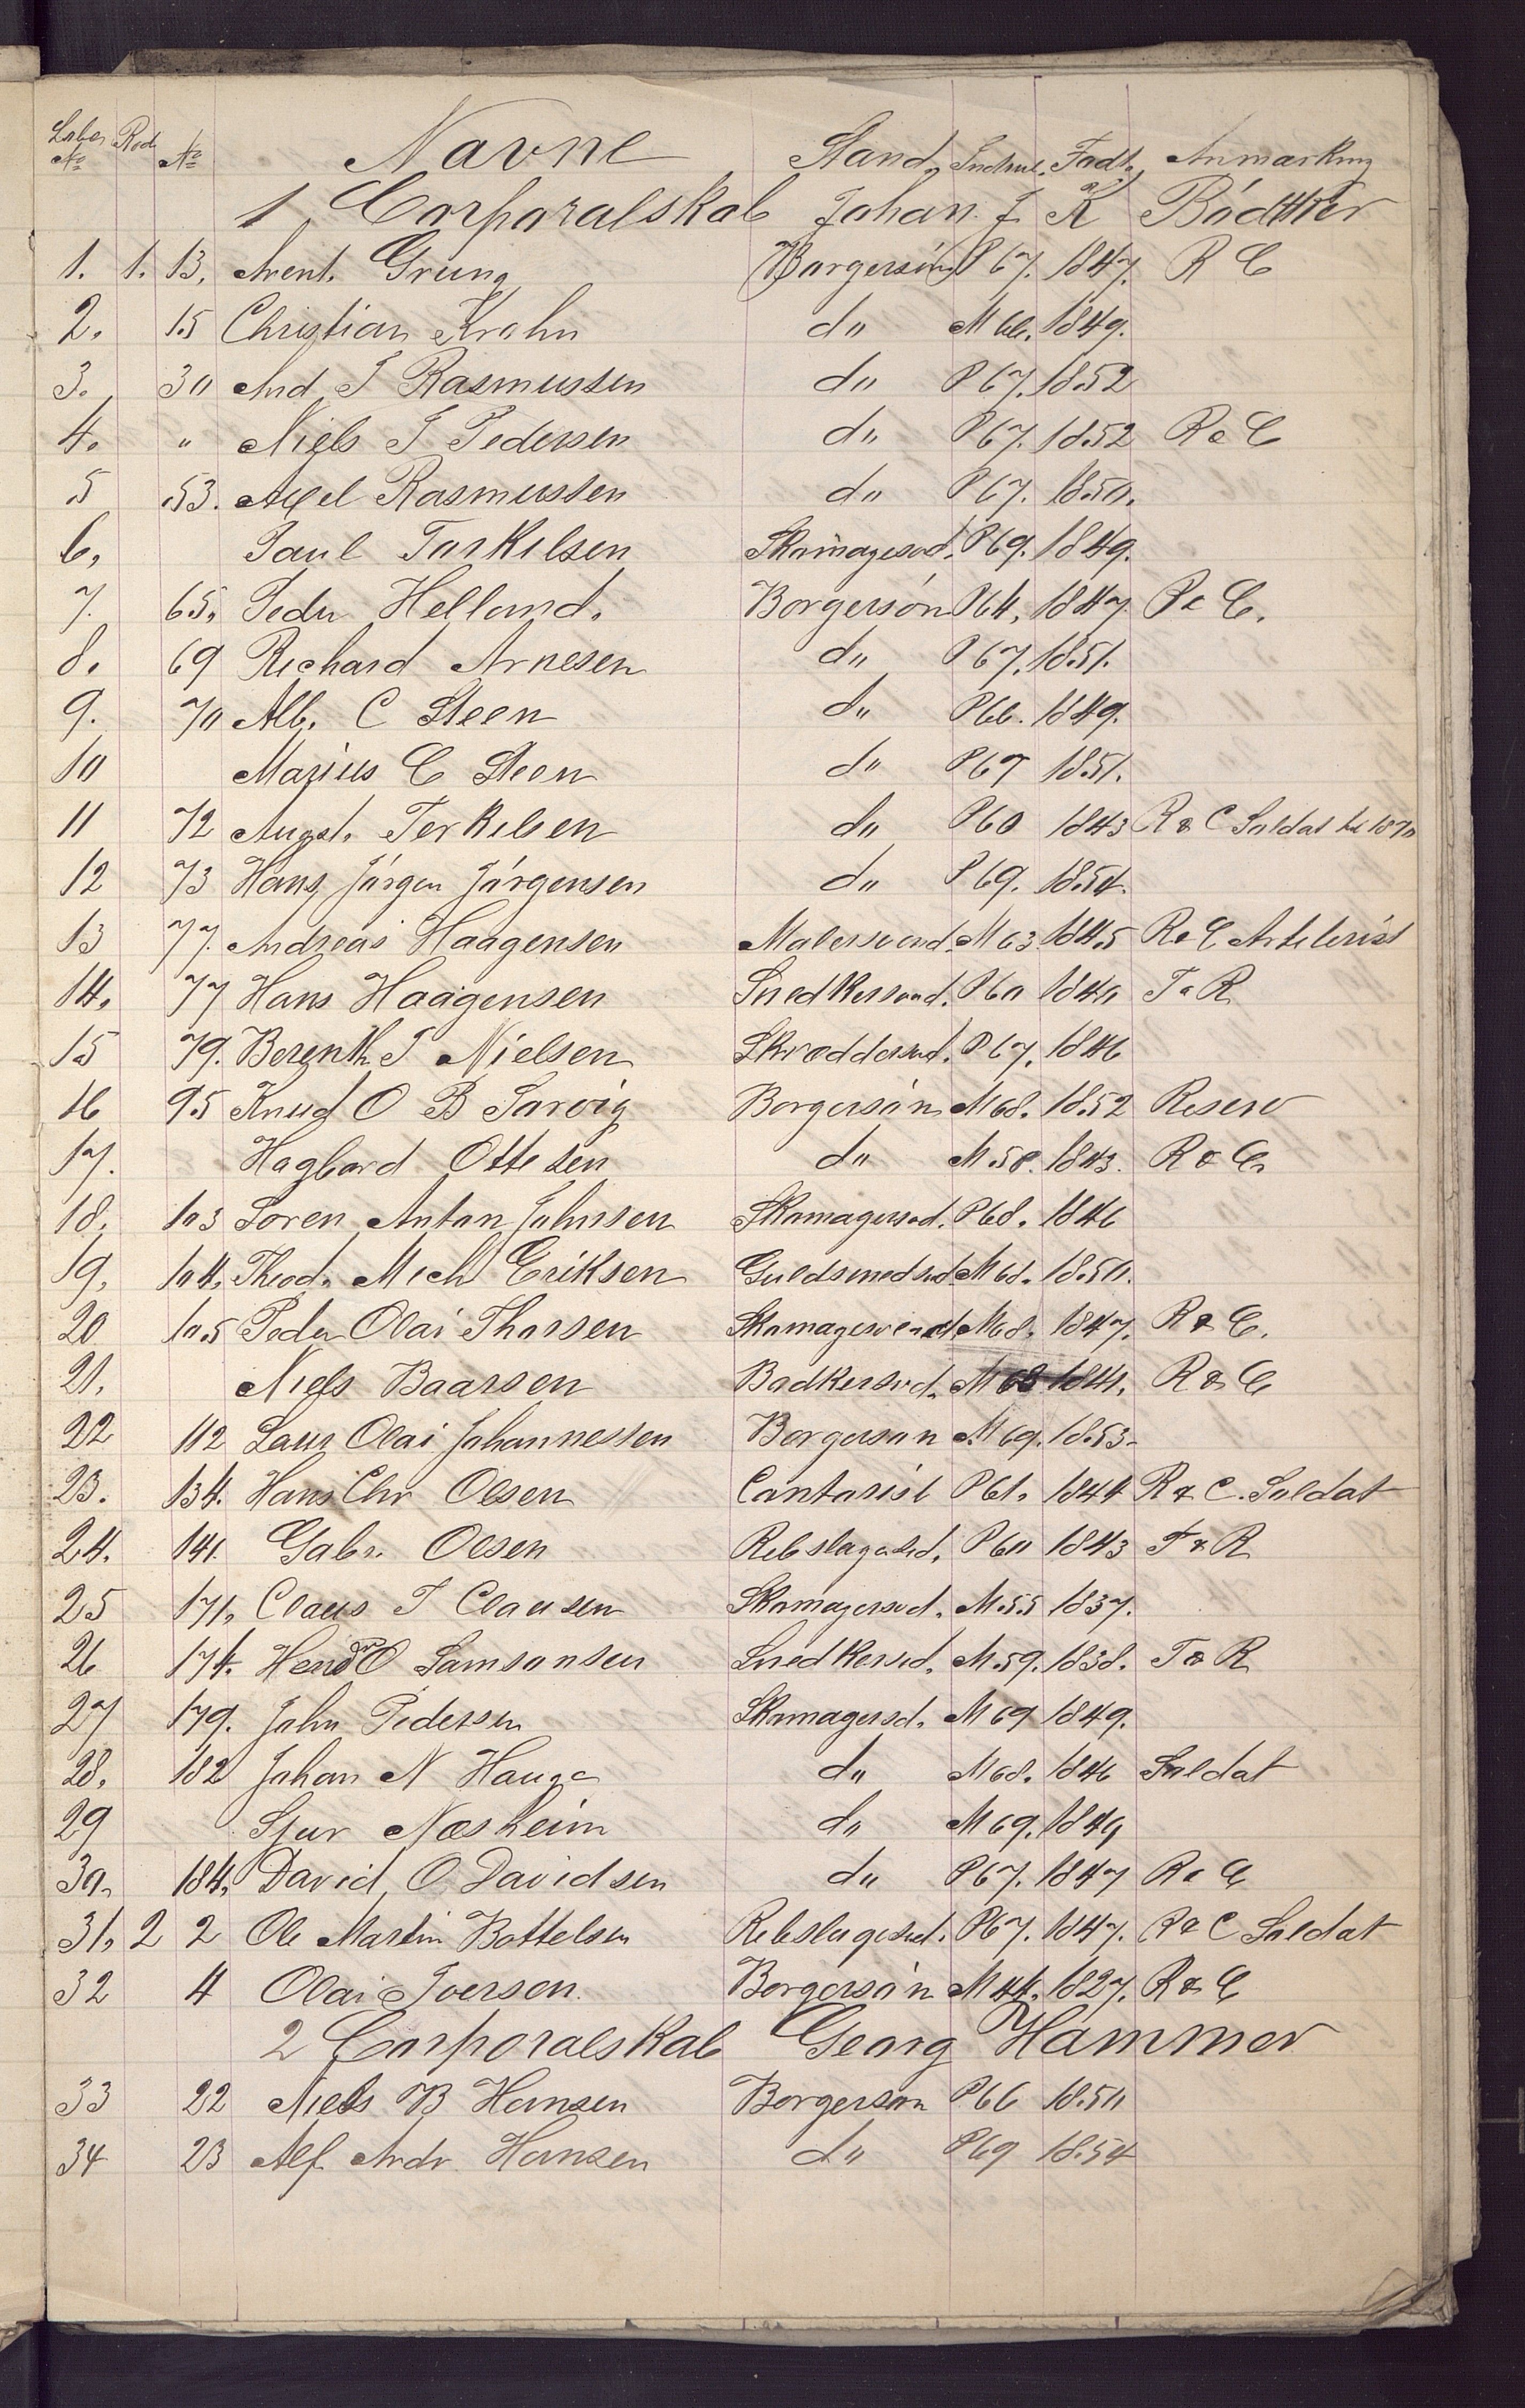 Løbe No Rode No Navne Stand Indrul. Født Anmærkning
1 Corporalskab Johan F K Bødtker
1. 1. 13. Arent Grung Borgersøn P 67. 1847. R C
2. 15 Christian Krohn d" M 66. 1849.
3. 30 And J Rasmussen d" P 67. 1852
4. " Niels J Pedersen d" P 67. 1852 R & C
5 53. Axel Rasmussen d" P 67. 1850.
6. Paul Torkilsen Skomagersvd. P 69. 1849.
7. 65. Peder Helland. Borgersøn P 64. 1847 R & C.
8. 69 Richard Arnesen d" P 67. 1851.
9. 70 Alb. C Steen d" P 66. 1849.
10 Marius C Steen d" P 67 1851.
11 72 Augst. Terkelsen d" P 60 1843 R & C Soldat til 1870
12 73 Hans Jørgen Jørgensen d" P 69. 1854.
13 77. Andreas Haagensen Malersvend. M 63. 1845 R & C Artelerist
14. 77 Hans Haagensen Snedkersvend. P 60 1840 T & R
15 79. Berenth J Nielsen Skrædersvd. P 67. 1846
16 95 Knud O B Sarvig Borgersøn M 68. 1852 Reserv
17. Hagbard Ottesen d" M 58. 1843. R & C.
18. 103 Soren Anton Johnsen Skomagersvd. P 68. 1846
19. 104. Theod. Mich Eriksen Guldsmedsvd. M 68. 1850.
20 105 Peder Olai Thorsen Skomagersvend M 68. 1847. R & C.
21. Niels Baarsen Bødkersvd. M 68 1841. R & C
22 112 Laur Olai Johannessen Borgersøn M 69. 1853.
23. 134. Hans Chr Olsen Contorist P 61. 1844 R & C. Soldat
24. 141. Gabr. Olsen Rebslagersvd. P 60 1843 T & R
25 171. Claus J Clausen Skomagersvd. M. 55 1837.
26 174. Hend O Samsonsen Snedkersvd. M. 59. 1838. T & R
27 179. John Pedersen Skomagersvd. M 69 1849.
28. 182 Johan N Hauge d" M 68. 1846 Soldat
29 Sjur Næsheim d" M 69. 1849
30. 184. David O Davidsen d" P 67. 1847 R & C
31. 2 2 Ole Martin Bottelsen Rebslagersvd. P 67. 1847. R & C Soldat
32 4 Olai Iversen Borgersøn M 44. 1827. R & C
2 Corporalskab Georg Hammer
33 22 Niels B Hansen Borgersøn P 66 1850
34 23 Alf Andr Hansen d" P 69 1854